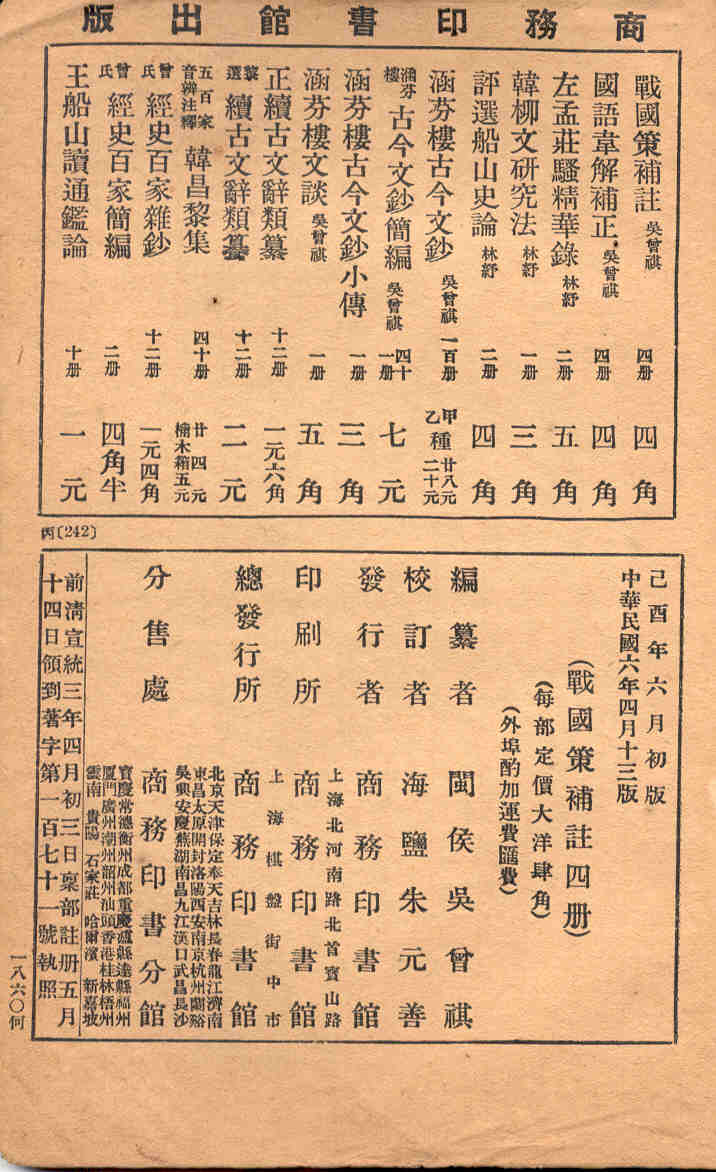 商務印書館出版
戰國策補註 吳曾祺 四册 四角
國語韋解補正 吳曾祺 四册 四角
左孟莊騷精華錄 林紓 二册 五角
韓柳文研究法 林紓 一册 三角
評選船山史論 林紓 二册 四角
涵芬樓古今文鈔 吳曾祺 一百册 甲種廿八元 乙種二十元
涵芬樓古今文鈔簡編 吳曾祺 四十一册 七元
涵芬樓古今文鈔小傳 一册 三角
涵芬樓文談 吳曾祺 一册 五角
正續古文辭類纂 十二册 一元六角
黎選續古文辭類纂 十二册 二元
五百家音辨注釋韓昌黎集 四十册 廿四元 楠木箱五元
曾氏經史百家雜鈔 十二册 一元四角
曾氏經史百家簡編 二册 四角半
王船山讀通鑑論 十册 一元
丙(242)
己酉年六月初版
中華民國六年四月十三版
(戰國策補註四册)
(每部定價大洋肆角)
(外埠酌加運費匯費)
編纂者 閩侯吳曾祺
校訂者 海鹽朱元善
發行者 商務印書館
上海北河南路北首寶山路
印刷所 商務印書館
上海棋盤街中市
總發行所 商務印書館
北京天津保定奉天吉林長春龍江濟南
東昌太原開封洛陽西安南京杭州蘭谿
吳興安慶蕪湖南昌九江漢口武昌長沙
分售處 商務印書分館
寶慶常德衡州成都重慶瀘縣達縣福州
厦門廣州潮州韶州汕頭香港桂林梧州
雲南 貴陽 石家莊 哈爾濱 新嘉坡
前清宣統三年四月初三日稟部註册五月
十四日領到著字第一百七十一號執照
一八六〇何